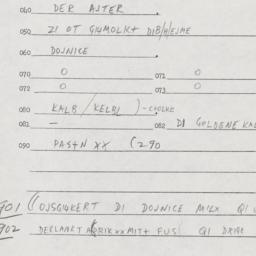 040 DER ALTER
050 ZI OT GIGMOLKT DIB/H/EJME
060 DOJNICE
070 0 071 0
072 0 073 0
080 KALB / KELBL ) -COOLHE
081 — 082 DI GOLDENE KAL
090 PASTN XX (290
901 ((OJSGIGKERT DI DOJNICE MILX QI
902 DERLANKT A DRIK XX MIT FUS QI DRIGE